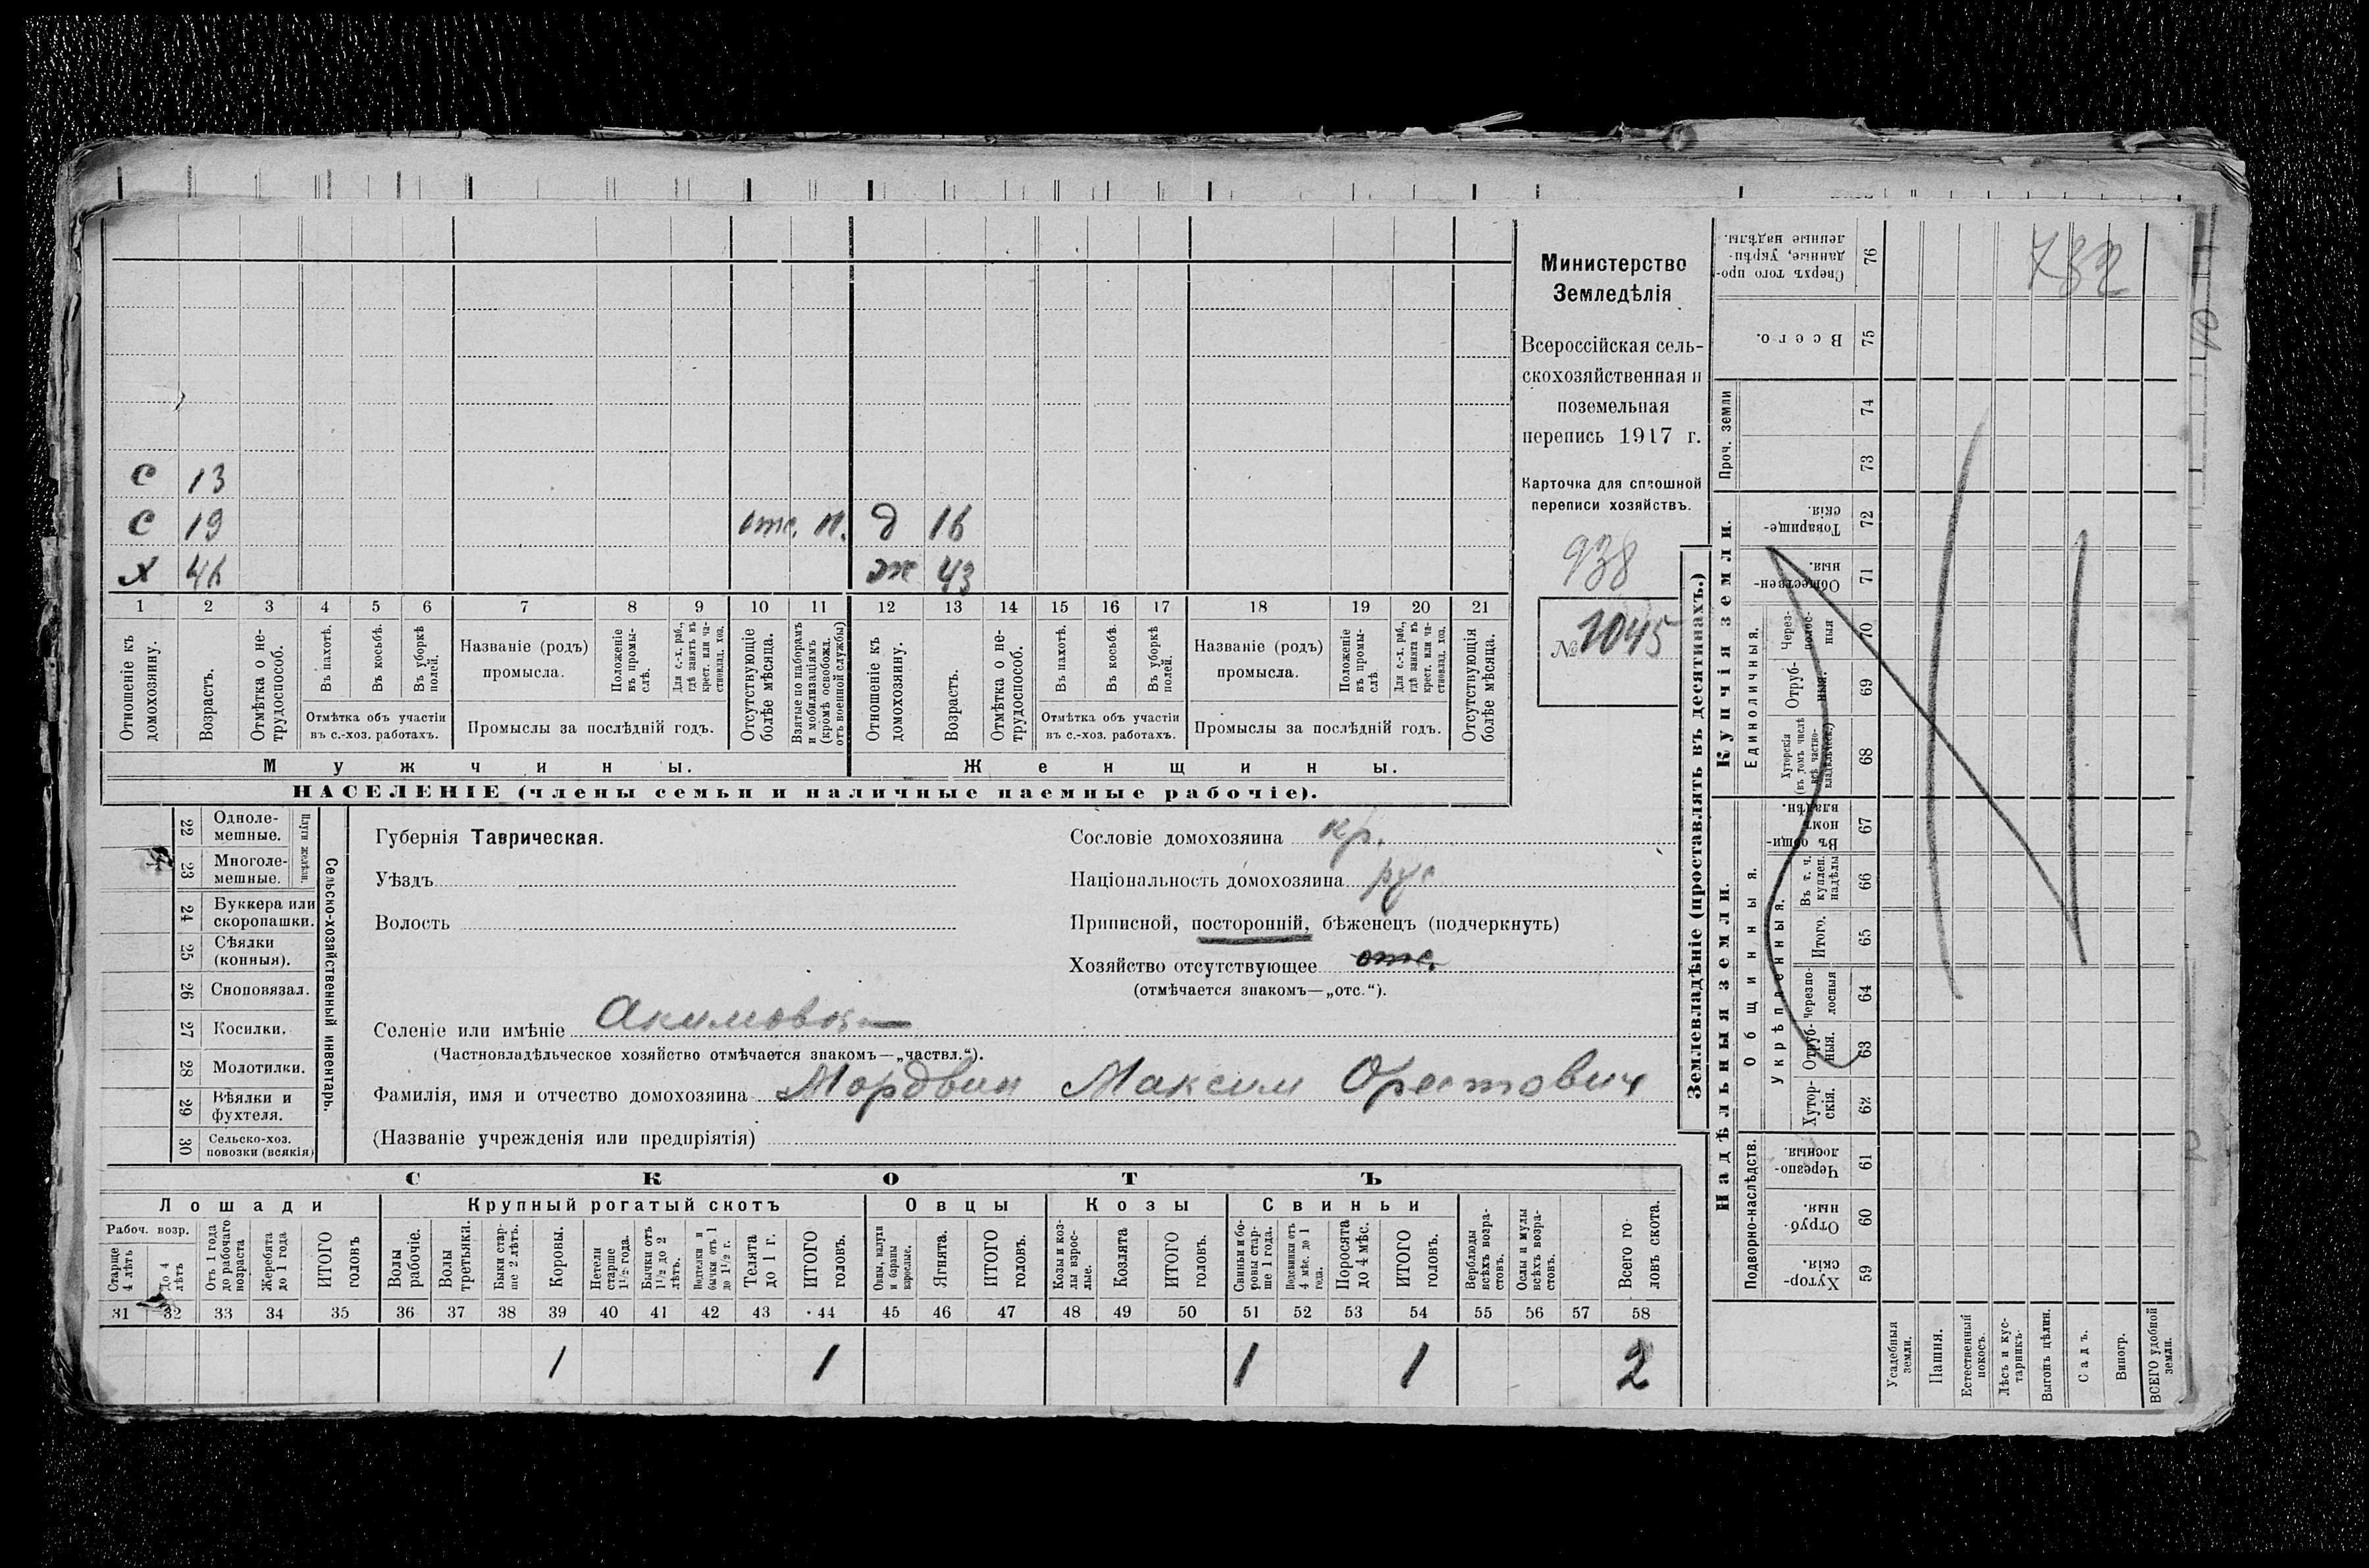 732
С 13
С 19 отс. п. д 16
Х 46 ж 43
1 2 3 4 5 6 7 8 9 10 11 12 13 14 15 16 17 18 19 20 21
Отношеніе къ домохозяину.
Возрастъ.
Отмѣтка о не-трудоспособ.
Въ пахотѣ.
Въ косьбѣ.
Въ уборкѣ полей.
Отмѣтка объ участіи
въ с.-хоз. работахъ.
Названіе (родъ)
промысла.
Положеніе въ промы-слѣ.
Для с.-х. раб., гдѣ занятъ въ крест. или ча-стновлад. хоз.
Промыслы за послѣдній годъ.
Отсутствующіе болѣе мѣсяца.
Взятые по наборамъ и мобилизаціямъ (кромѣ освобожд. отъ военной службы)
Отношеніе къ домохозяину.
Возрастъ.
Отмѣтка о не-трудоспособ.
Въ пахотѣ.
Въ косьбѣ.
Въ уборкѣ полей.
Отмѣтка объ участіи
въ с.-хоз. работахъ.
Названіе (родъ)
промысла.
Положеніе въ промы-слѣ
Для с.-х. раб., гдѣ занята въ крест. или ча-стновлад. хоз.
Промыслы за послѣдній годъ.
Отсутствующія болѣе мѣсяца.
Мужчины.
Женщины.
НАСЕЛЕНІЕ (члены семьи и наличные наемные рабочіе).
Министерство
Земледѣлія
Всероссійская сель-
скохозяйственная и
поземельная
перепись 1917 г.
Карточка для сплошной
переписи хозяйствъ.
938
№ 1045
Сельско-хозяйственный инвентарь.
Плуги желѣзн.
22 Одноле-мешные.
23 Многоле-мешные.
24 Буккера или скоропашки.
25 Сѣялки (конныя).
26 Сноповязал.
27 Косилки.
28 Молотилки.
29 Вѣялки и фухтеля.
30 Сельско-хоз. повозки (всякія)
Губернія Таврическая.
Уѣздъ
Волость
Сословіе домохозяина кр.
Національность домохозяина рус
Приписной, посторонній, бѣженецъ (подчеркнуть)
Хозяйство отсутствующее отс.
(отмѣчается знакомъ—„отс.“).
Селеніе или имѣніе Акимовка
(Частновладѣльческое хозяйство отмѣчается знакомъ—„частвл.“).
Фамилія, имя и отчество домохозяина Мордвин Максим Орестович
(Названіе учрежденія или предпріятія)
СКОТЪ
Лошади
Крупный рогатый скотъ
Овцы
Козы
Свиньи
Рабоч. возр.
Старше 4 лѣтъ
До 4 лѣтъ
Отъ 1 года до рабочаго возраста
Жеребята до 1 года
ИТОГО головъ
Волы рабочіе.
Волы третьяки.
Быки стар-ше 2 лѣтъ.
Коровы.
Нетели старше 1½ года.
Бычки отъ 1½ до 2 лѣтъ.
Подтелки и бычки отъ 1 до 1½ г.
Телята до 1 г.
ИТОГО головъ.
Овцы, валухи и бараны взрослые.
Ягнята.
ИТОГО головъ.
Козы и коз-лы взрос-лые.
Козлята
ИТОГО головъ.
Свиньи и бо-ровы стар-ше 1 года.
Подсвинки отъ 4 мѣс. до 1 года.
Поросята до 4 мѣс.
ИТОГО головъ.
Верблюды всѣхъ возра-стовъ.
Ослы и мулы всѣхъ возра-стовъ.
Всего го-ловъ скота.
31 32 33 34 35 36 37 38 39 40 41 42 43 44 45 46 47 48 49 50 51 52 53 54 55 56 57 58
1 1 1 1 2
Землевладѣніе (проставлять въ десятинахъ.)
Надѣльныя земли.
Купчія земли.
Проч. земли
Подворно-наслѣдств.
Общинныя.
Укрѣпленныя.
Единоличныя.
Сверхъ того про-данные, укрѣп-ленные надѣлы. 76
Всего. 75
74
73
Товарище-скія. 72
Обществен-ныя. 71
Черезполос-ныя 70
Отруб-ныя. 69
Хуторскія (въ томъ числѣ всѣ частно-владѣльческ.) 68
Въ общин-номъ владѣн. 67
Въ т. ч. куплен. надѣлы 66
Итого. 65
Черезпо-лосныя 64
Отруб-ныя. 63
Хутор-скія. 62
Черезпо-лосныя. 61
Отруб-ныя. 60
Хутор-скія. 59
Усадебныя земли.
Пашня.
Естественный покосъ.
Лѣсъ и кус-тарникъ.
Выгонъ цѣлин.
Садъ.
Виногр.
ВСЕГО удобной земли.